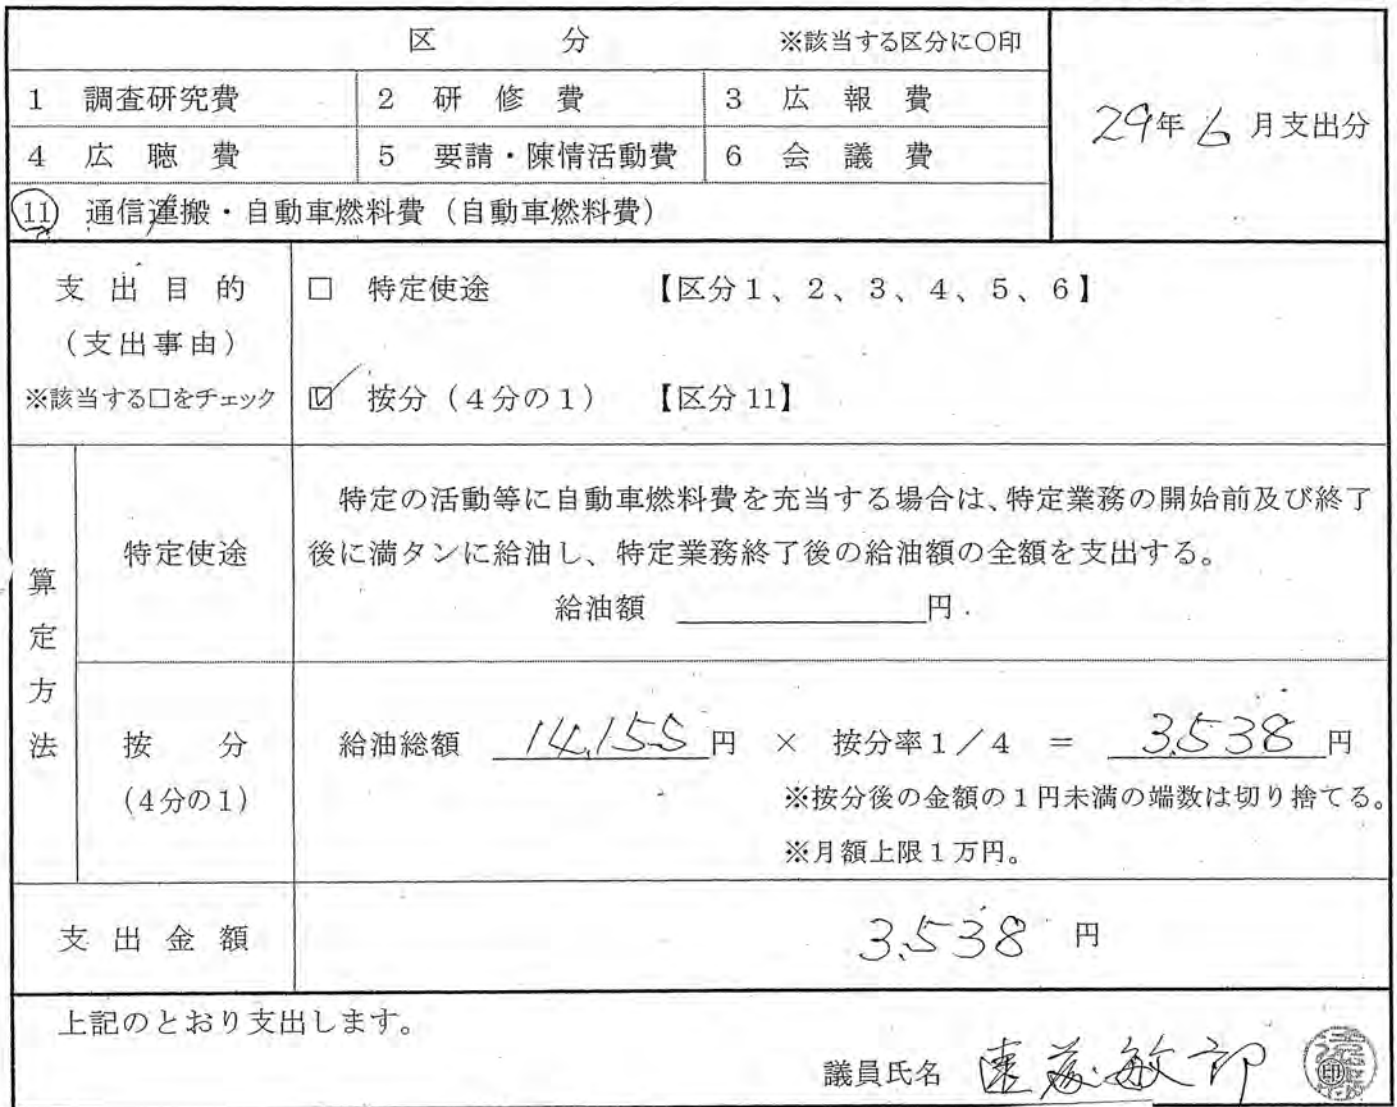 区 分 ※該当する区分に〇印
1 調査研究費 2 研修費 3 広報費
29年6月支出分
4 広聴費 5 要請・陳情活動費 6 会議費
11 通信運搬・自動車燃料費（自動車燃料費）
支出目的
（支出事由）
※該当する□をチェック
□ 特定使途 【区分1、2、3、4、5、6】
☑ 按分（4分の1） 【区分11】
算定方法
特定使途
特定の活動等に自動車燃料費を充当する場合は、特定業務の開始前及び終了
後に満タンに給油し、特定業務終了後の給油額の全額を支出する。
給油額 円
按分
（4分の1）
給油総額 14,155円 × 按分率1／4 ＝ 3,538円
※按分後の金額の1円未満の端数は切り捨てる。
※月額上限1万円。
支出金額 3,538円
上記のとおり支出します。
議員氏名 遠藤敏郎 印